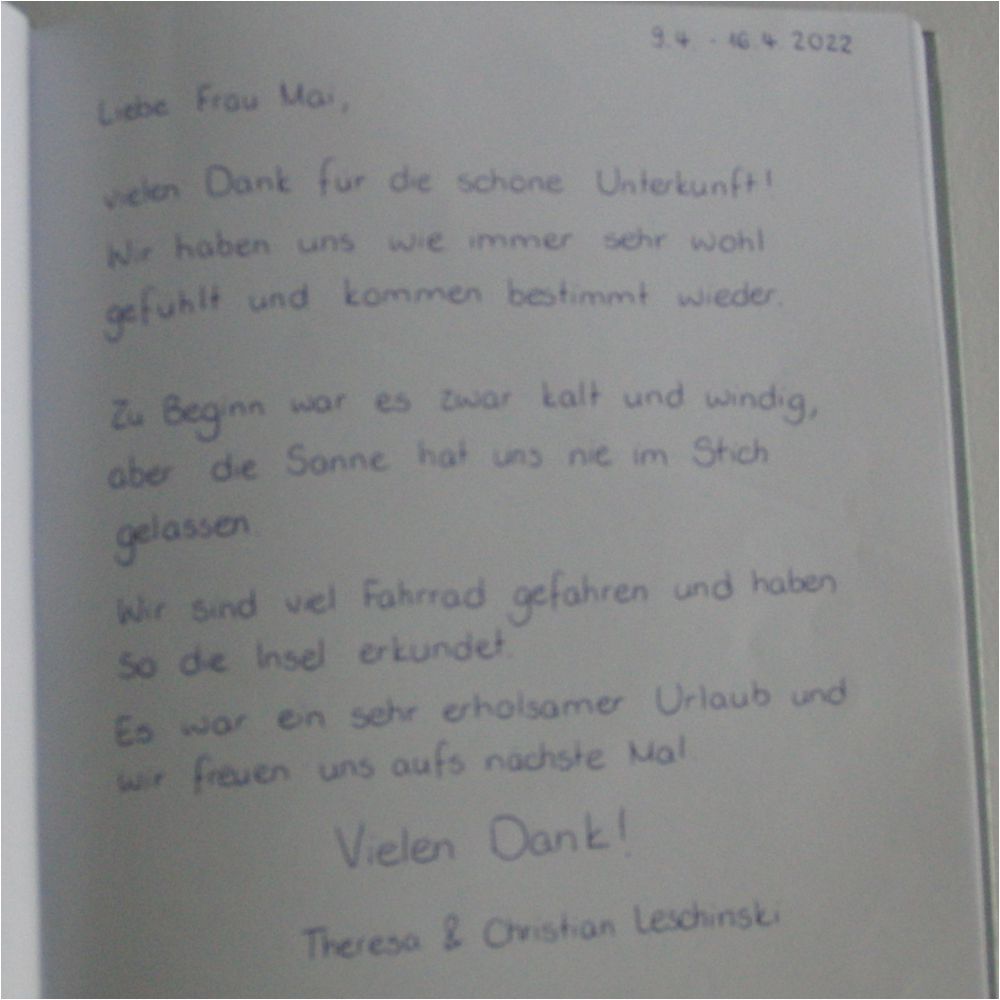 9.4 - 16.4 2022
Liebe Frau Mai,
vielen Dank für die schöne Unterkunft!
Wir haben uns wie immer sehr wohl
gefühlt und kommen bestimmt wieder.
Zu Beginn war es zwar kalt und windig,
aber die Sonne hat uns nie im Stich
gelassen.
Wir sind viel Fahrrad gefahren und haben
so die Insel erkundet.
Es war ein sehr erholsamer Urlaub und
wir freuen uns aufs nächste Mal.
Vielen Dank!
Theresa & Christian Leschinski